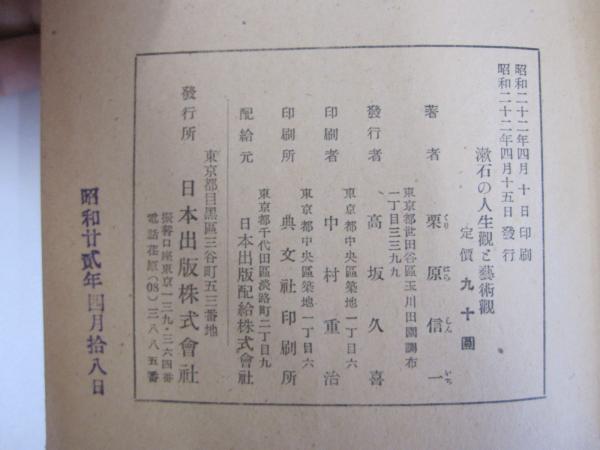 昭和二十二年四月十日印刷
昭和二十二年四月十五日發行
漱石の人生觀と藝術觀
定價九十圓
著者 栗原信一
くり はら しん いち
東京都世田谷區玉川田園調布
一丁目三三九九
發行者 高坂久喜
東京都中央區築地一丁目六
印刷者 中村重治
東京都中央區築地一丁目六
印刷所 典文社印刷所
東京都千代田區淡路町二丁目九
配給元 日本出版配給株式會社
東京都目黑區三谷町五三番地
發行所 日本出版株式會社
振替口座東京一三九・三六四番
電話荏原(08)三八八五番
昭和廿貳年四月拾八日